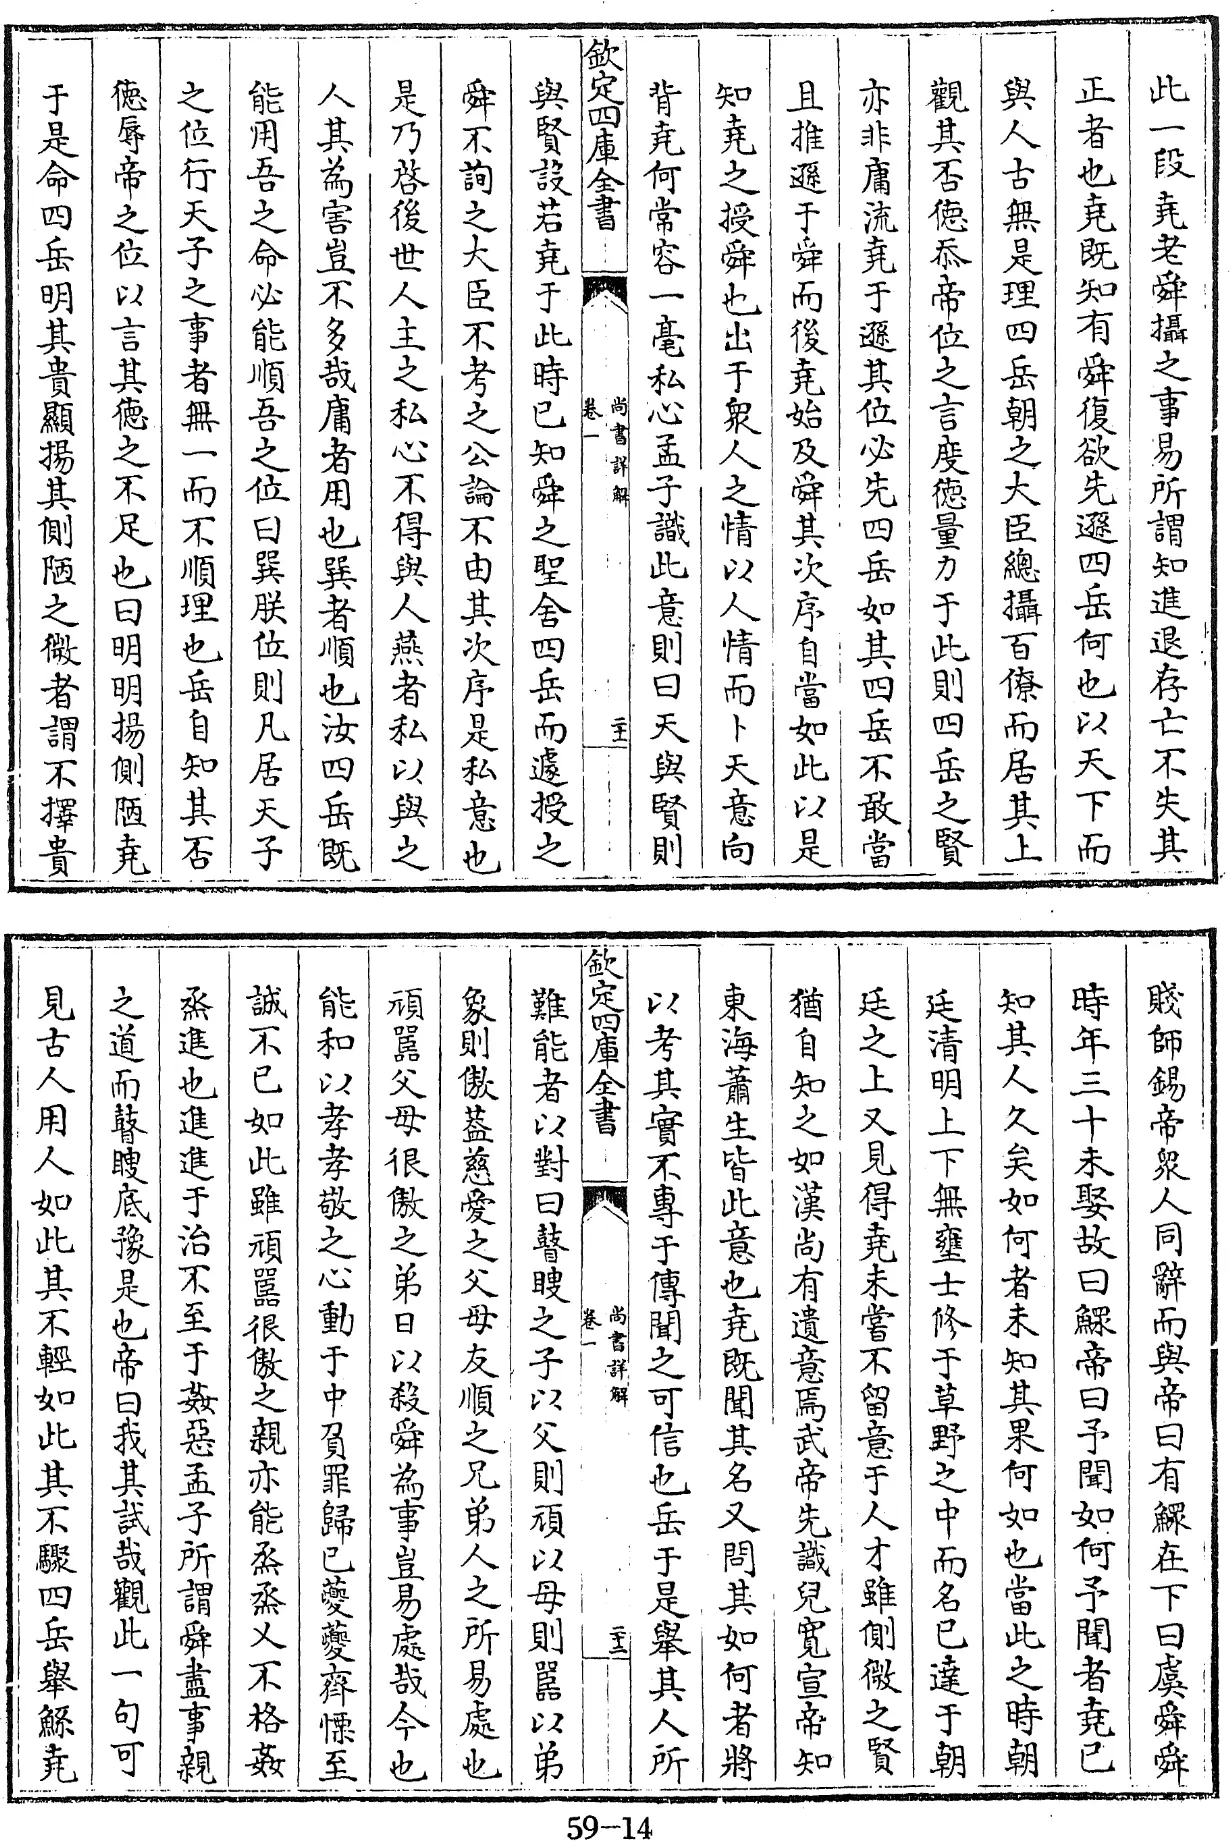 此一段堯老舜攝之事易所謂知進退存亡不失其
正者也堯既知有舜復欲先遜四岳何也以天下而
與人古無是理四岳朝之大臣總攝百僚而居其上
觀其否德忝帝位之言度德量力于此則四岳之賢
亦非庸流堯于遜其位必先四岳如其四岳不敢當
且推遜于舜而後堯始及舜其次序自當如此以是
知堯之授舜也出于衆人之情以人情而卜天意向
背堯何常容一毫私心孟子識此意則曰天與賢則
欽定四庫全書
尚書詳解
卷一
二十一
與賢設若堯于此時已知舜之聖舍四岳而遽授之
舜不詢之大臣不考之公論不由其次序是私意也
是乃啓後世人主之私心不得與人燕者私以與之
人其為害豈不多哉庸者用也巽者順也汝四岳既
能用吾之命必能順吾之位曰巽朕位則凡居天子
之位行天子之事者無一而不順理也岳自知其否
德辱帝之位以言其德之不足也曰明明揚側陋堯
于是命四岳明其貴顯揚其側陋之微者謂不擇貴
賤師錫帝衆人同辭而與帝曰有鰥在下曰虞舜舜
時年三十未娶故曰鰥帝曰予聞如何予聞者堯已
知其人久矣如何者未知其果何如也當此之時朝
廷清明上下無壅士修于草野之中而名已達于朝
廷之上又見得堯未嘗不留意于人才雖側微之賢
猶自知之如漢尚有遺意焉武帝先識兒寬宣帝知
東海蕭生皆此意也堯既聞其名又問其如何者將
以考其實不專于傳聞之可信也岳于是舉其人所
欽定四庫全書
尚書詳解
卷一
二十二
難能者以對曰瞽瞍之子以父則頑以母則嚚以弟
象則傲葢慈愛之父母友順之兄弟人之所易處也
頑嚚父母很傲之弟日以殺舜為事豈易處哉今也
能和以孝孝敬之心動于中負罪歸已夔夔齊慄至
誠不已如此雖頑嚚很傲之親亦能烝烝乂不格姦
烝進也進進于治不至于姦惡孟子所謂舜盡事親
之道而瞽瞍底豫是也帝曰我其試哉觀此一句可
見古人用人如此其不輕如此其不驟四岳舉鯀堯
59-14